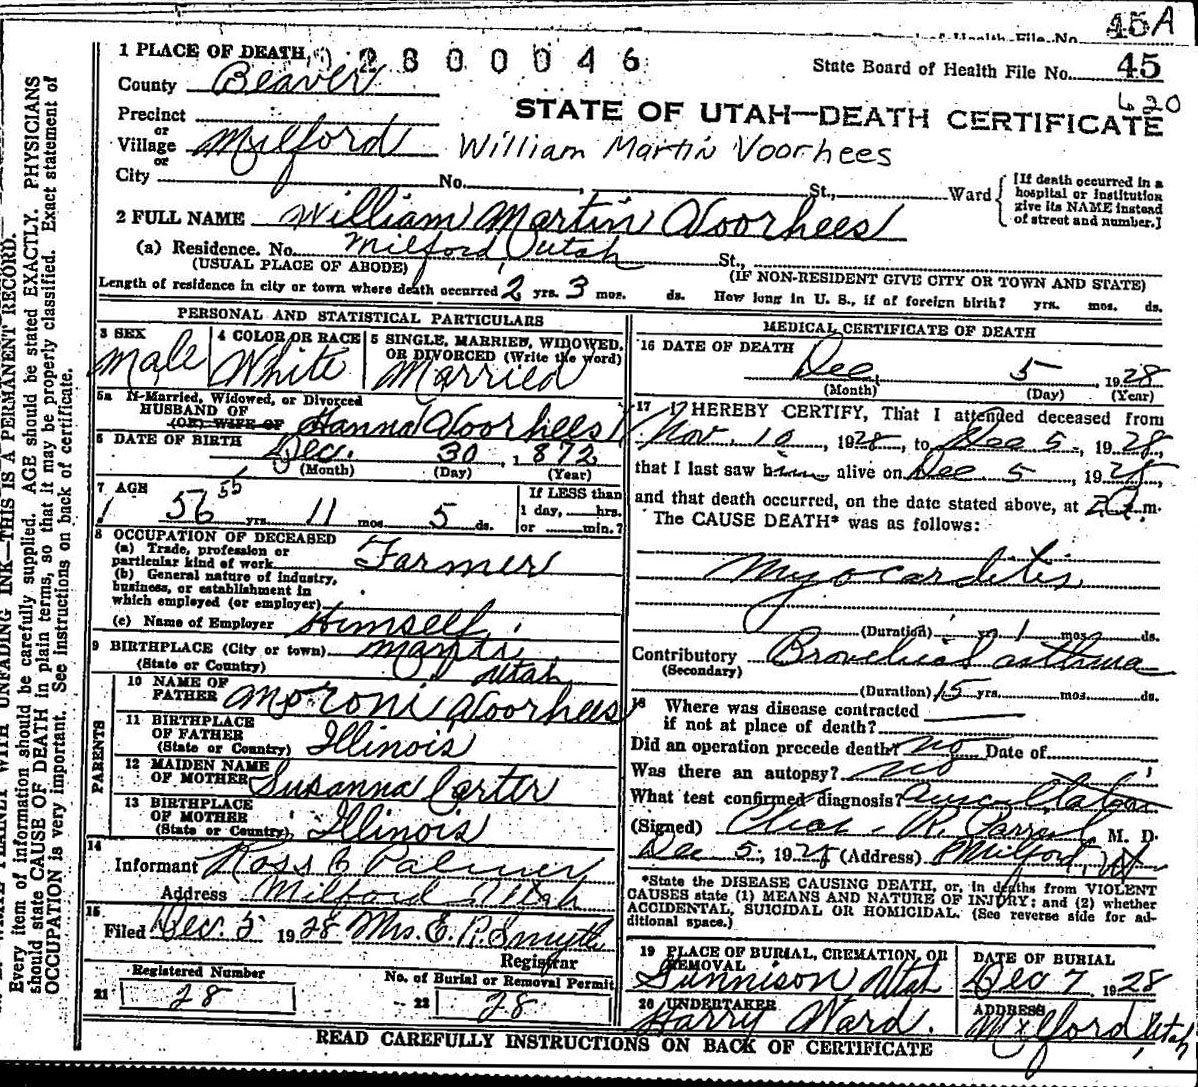 45A
of Health File No.
1 PLACE OF DEATH, 0 2 8 0 0 0 4 6 State Board of Health File No. 45
County Beaver 620
STATE OF UTAH—DEATH CERTIFICATE
Precinct
or
Village Milford William Martin Voorhees
or
City No. , St., Ward {
[If death occurred in a
hospital or institution
give its NAME instead
of street and number.]
2 FULL NAME William Martin Voorhees
(a) Residence. No. Milford, Utah St.,
(USUAL PLACE OF ABODE) (IF NON-RESIDENT GIVE CITY OR TOWN AND STATE)
Length of residence in city or town where death occurred 2 yrs. 3 mos. ds. How long in U. S., if of foreign birth? yrs. mos. ds.
PERSONAL AND STATISTICAL PARTICULARS
3 SEX
Male
4 COLOR OR RACE
White
5 SINGLE, MARRIED, WIDOWED,
OR DIVORCED (Write the word)
Married
5a If Married, Widowed, or Divorced
HUSBAND OF
(OR) WIFE OF Hanna Voorhees
6 DATE OF BIRTH Dec. 30, 1872
(Month) (Day) (Year)
7 AGE
56 55 yrs. 11 mos 5 ds.
If LESS than
1 day, hrs.
or min.?
8 OCCUPATION OF DECEASED
(a) Trade, profession or
particular kind of work Farmer
(b) General nature of industry,
business, or establishment in
which employed (or employer)
(c) Name of Employer Himself
9 BIRTHPLACE (City or town) Manti
(State or Country) Utah
PARENTS
10 NAME OF
FATHER Moroni Voorhees
11 BIRTHPLACE
OF FATHER
(State or Country) Illinois
12 MAIDEN NAME
OF MOTHER Susanna Carter
13 BIRTHPLACE
OF MOTHER
(State or Country) Illinois
14
Informant Ross C Palmer
Address Milford Utah
15
Filed Dec. 5 1928 Mrs. E. R. Smyth
Registrar
Registered Number No. of Burial or Removal Permit
21 28 22 28
MEDICAL CERTIFICATE OF DEATH
16 DATE OF DEATH
Dec. 5, 1928
(Month) (Day) (Year)
17 I HEREBY CERTIFY, That I attended deceased from
Nov. 10, 1928, to Dec 5, 1928,
that I last saw him alive on Dec 5, 1928,
and that death occurred, on the date stated above, at m.
The CAUSE DEATH* was as follows:
Myocarditis
(Duration) yrs 1 mos. ds.
Contributory Bronchial asthma
(Secondary)
(Duration) 15 yrs. mos. ds.
18 Where was disease contracted
if not at place of death?
Did an operation precede death? no Date of
Was there an autopsy? no
What test confirmed diagnosis? Auscultation
(Signed) Chas. R. M. D.
Dec 5, 1928 (Address) Milford, Ut
*State the DISEASE CAUSING DEATH, or, in deaths from VIOLENT
CAUSES state (1) MEANS AND NATURE OF INJURY; and (2) whether
ACCIDENTAL, SUICIDAL OR HOMICIDAL. (See reverse side for ad-
ditional space.)
19 PLACE OF BURIAL, CREMATION, OR
REMOVAL
Gunnison Utah
DATE OF BURIAL
Dec 7 1928
20 UNDERTAKER
Harry Ward.
ADDRESS
Milford Utah
READ CAREFULLY INSTRUCTIONS ON BACK OF CERTIFICATE
WITH UNFADING INK—THIS IS A PERMANENT RECORD.
Every item of information should be carefully supplied. AGE should be stated EXACTLY. PHYSICIANS
should state CAUSE OF DEATH in plain terms, so that it may be properly classified. Exact statement of
OCCUPATION is very important. See instructions on back of certificate.